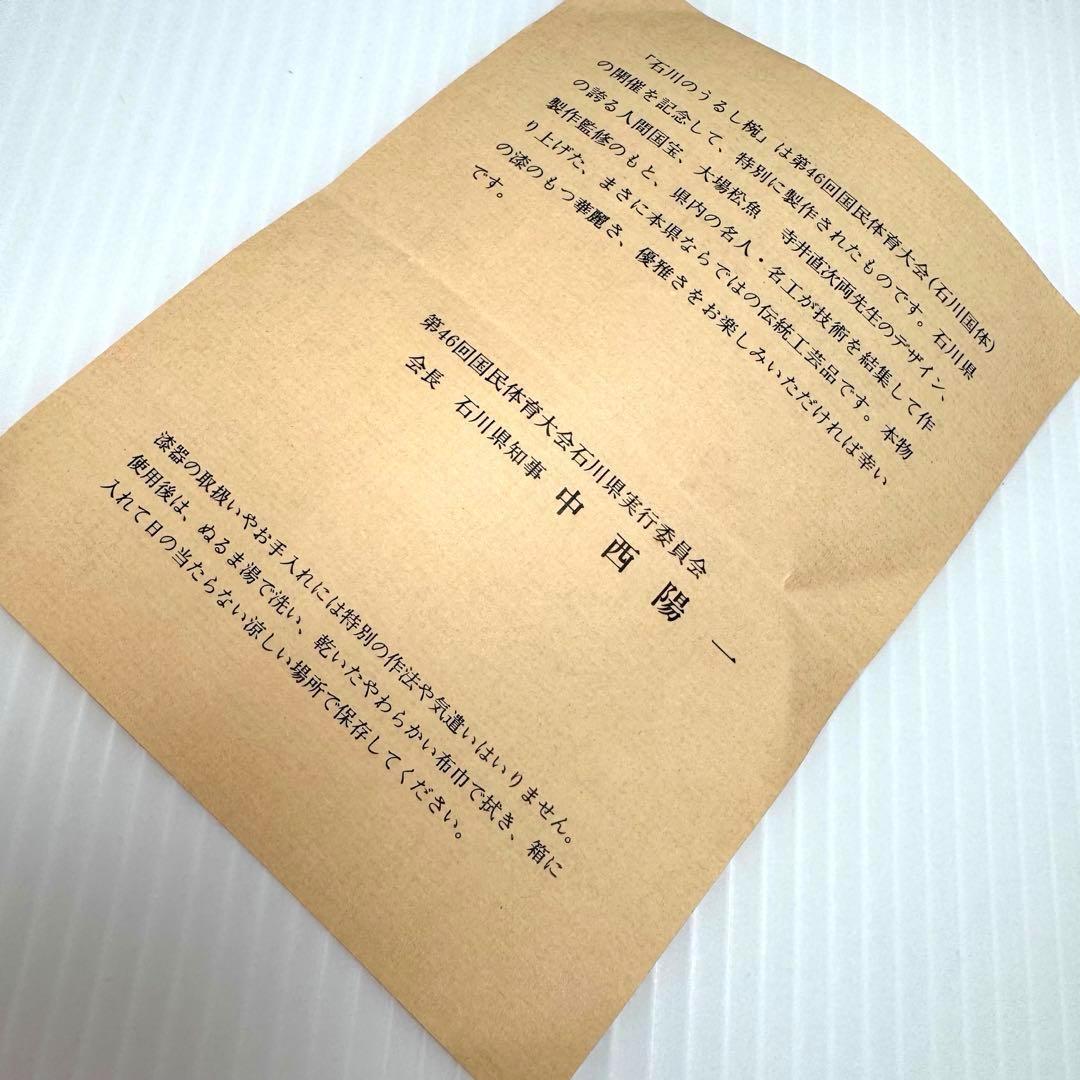 「石川のうるし椀」は第46回国民体育大会(石川国体)
の開催を記念して、特別に製作されたものです。石川県
の誇る人間国宝、大場松魚　寺井直次両先生のデザイン、
製作監修のもと、県内の名人・名工が技術を結集して作
り上げた、まさに本県ならではの伝統工芸品です。本物
の漆のもつ華麗さ、優雅さをお楽しみいただければ幸い
です。
第46回国民体育大会石川県実行委員会
会長　石川県知事　中西陽一
漆器の取扱いやお手入れには特別の作法や気遣いはいりません。
使用後は、ぬるま湯で洗い、乾いたやわらかい布巾で拭き、箱に
入れて日の当たらない涼しい場所で保存してください。